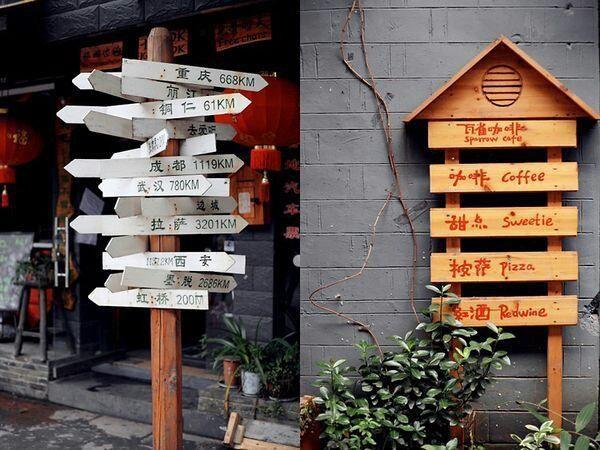 Free chat
重庆 668KM
丽江
铜仁 61KM
成都 1119KM
武汉 780KM
边城
拉萨 3201KM
西安
墨脱 2686KM
虹桥 200M
瓦雀咖啡
Sparrow cafe
咖啡 Coffee
甜点 Sweetie
披萨 Pizza
红酒 Redwine